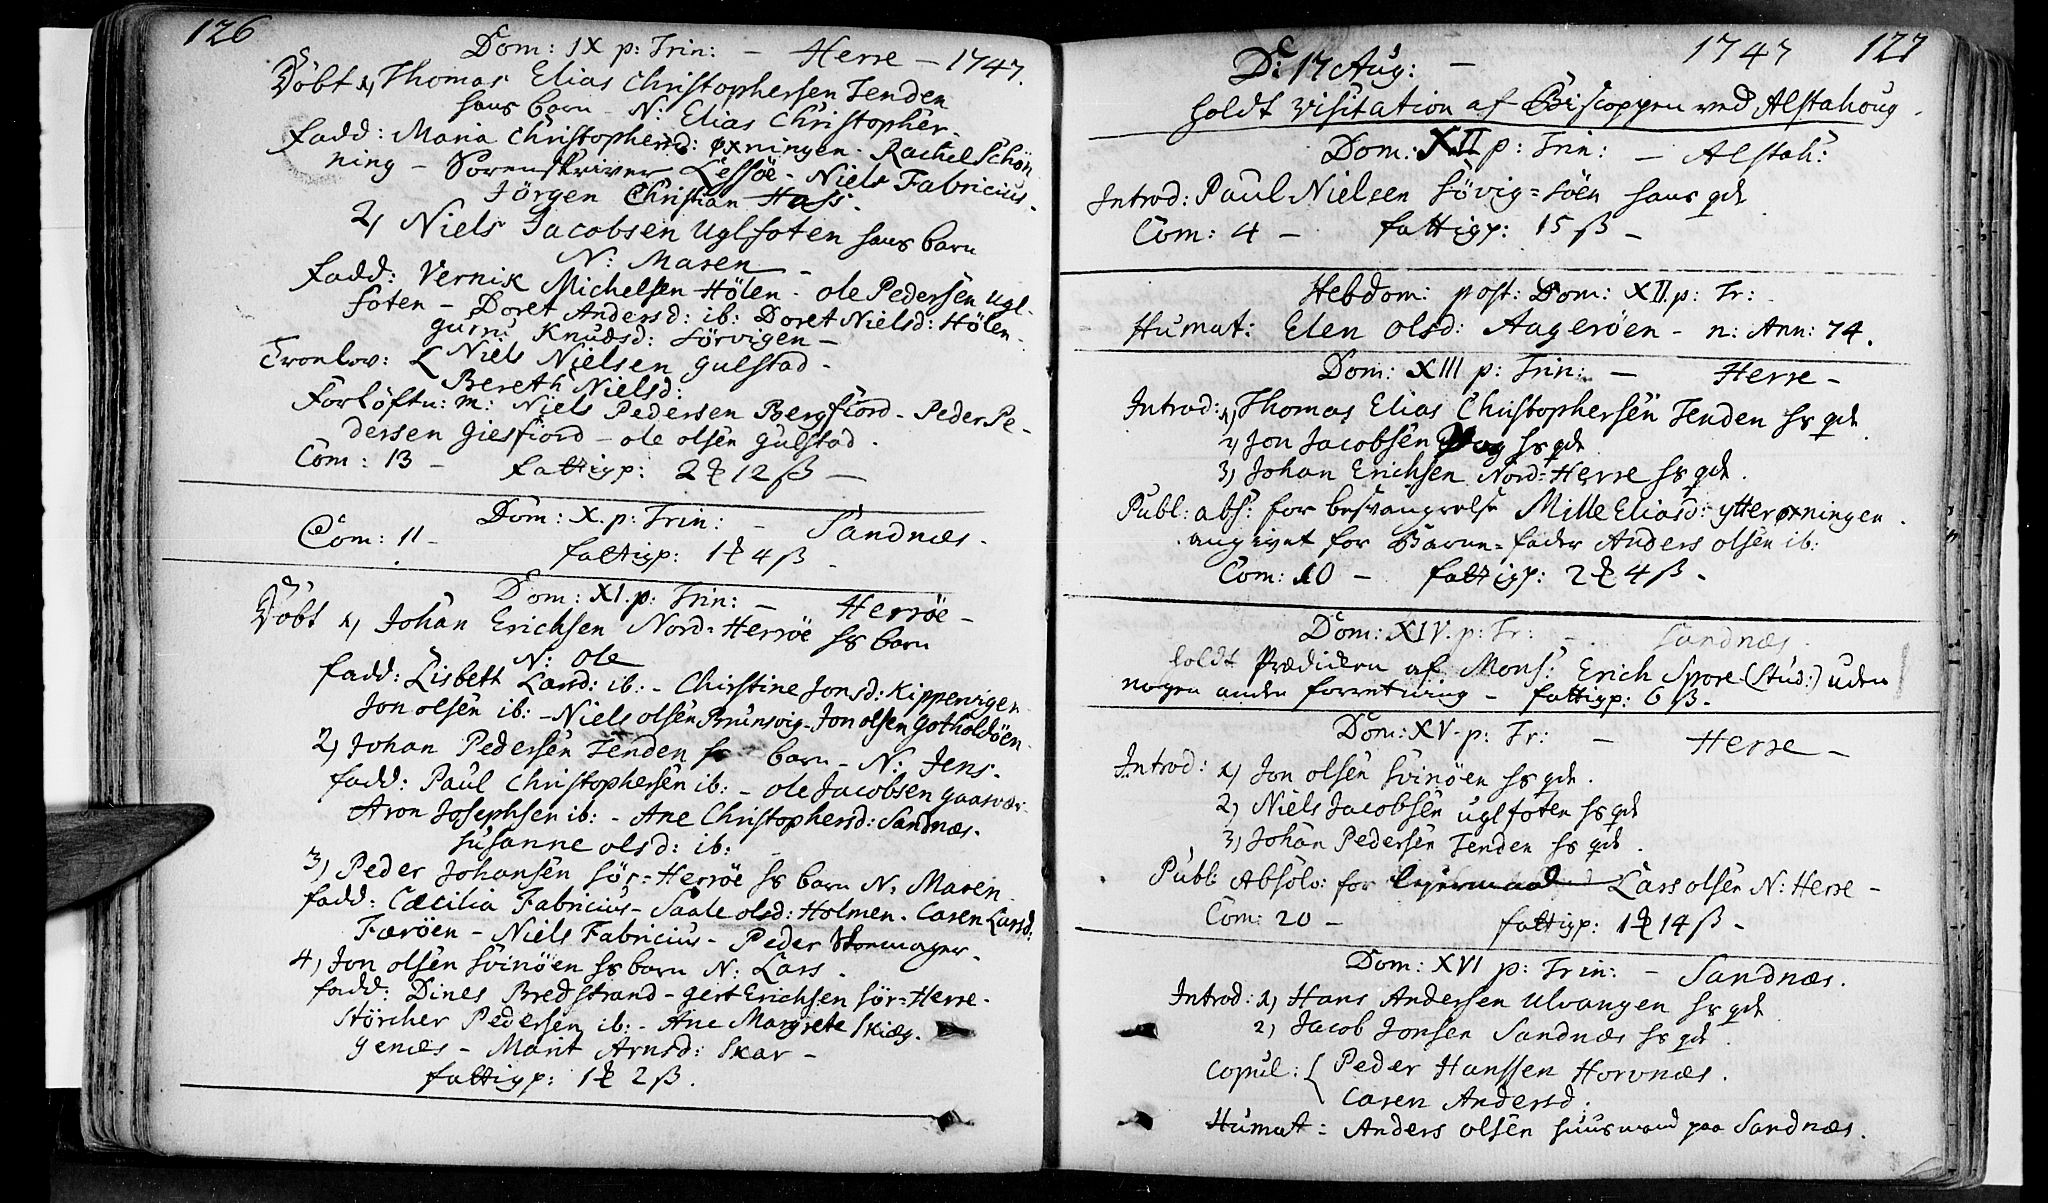 126
Dom: IX p: Trin: – Herre – 1747.
Döbt 1, Thomas Elias Christophersen Tenden
hans barn – N: Elias Christopher.
fadd: Maria Christophersd: øxningen – Rachel Schön
ning – Sorenskriver Lessöe – Niels Fabricius.
Jörgen Christian Hass.
2, Niels Jacobsen Uglfoten hans barn
N: Maren –
fadd: Vernik Michelsen Hölen – ole Pedersen Ugl-
foten – Doret Andersd: ib: Doret Nielsd: Hölen
guru Knudsd: Sörvigen –
Tronlov: { Niels Nielsen gulstad –
Bereth Nielsd:
Forlöftn: m: Niels Pedersen Bergfiord – Peder Pe-
dersen Giesfiord – ole olsen gulstad.
Com: 13 – fattigp: 2 12 ß –
Dom: X. p: Trin: – Sandnæs.
Com: 11 – fattigp: 1 4 ß
Dom: XI. p: Trin: – Herröe –
Döbt 1, Johan Erichsen Nord=Herröe hs barn
N: ole
fadd: Lisbeth Larsd: ib: – Christine Jonsd: Kippervigen
Jon olsen ib: – Niels olsen Brunsvig – Jon olsen Gotholdöen
2, Johan Pedersen Tenden hs barn – N: Jens.
fadd: Paul Christophersen ib: – ole Jacobsen gaasvær
Aron Josephsen ib: – Ane Christophersd: Sandnæs.
Susanne olsd: ib:
3) Peder Johansen Sör=Herröe hs barn N: Maren
fadd: Cæcilia Fabricius – Saale olsd: Holmen. Caren Larsd:
Færöen – Niels Fabricius – Peder Skomager.
4, Jon olsen Svinöen hs barn N: Lars.
fadd: Dines Bredstrand – gert Erichsen Sör=Herre.
Störcher Pedersen ib: – Ane Margrete Skieg.
genes – Marit Arnsd: Skar –
fattigp: 1 2 ß.
D: 17 Aug: – 1747 127
holdt visitation af Biscoppen ved Alstahoug.
Dom: XII p: Trin: – Alstah:
Introd: Paul Nielsen Sövig=Söen hans qd
Com: 4 – fattigp: 15 ß –
Hebdom: post: Dom: XII. p: Tr:
Humat: Elen olsd: Aageröen – n: Ann: 74.
Dom: XIII p: Trin: – Herre –
Introd: 1, Thomas Elias Christophersen Tenden hs qd
2, Jon Jacobsen hs qd
3, Johan Erichsen Nord=Herre hs qd.
Publ: abs: for besvangrelse Mille Eliasd: ytterøxningen.
angivet for Barne=fader Anders olsen ib:
Com: 10 – fattigp: 2 4 ß –
Dom: XIV. p: Tr: – Sandnæs.
holdt Prædiken af Mons: Erich Spore (Stud:) uden
nogen anden forretning – fattigp: 6 ß.
Dom: XV. p: Tr: – Herre –
Introd: 1, Jon olsen Svinöen hs qd.
2, Niels Jacobsen uglfoten hs qd
3, Johan Pedersen Tenden hs qd.
Publ: Absolv: for lejermaal Lars olsen N: Herre –
Com: 20 – fattigp: 1 14 ß –
Dom: XVI p: Trin: – Sandnæs.
Introd: 1, Hans Andersen Ulvangen hs qd
2, Jacob Jonsen Sandnæs hs qd.
Copul: { Peder Hanssen Horvnæs.
Caren Andersd:
Humat: Anders olsen huusmand paa Sandnæs.